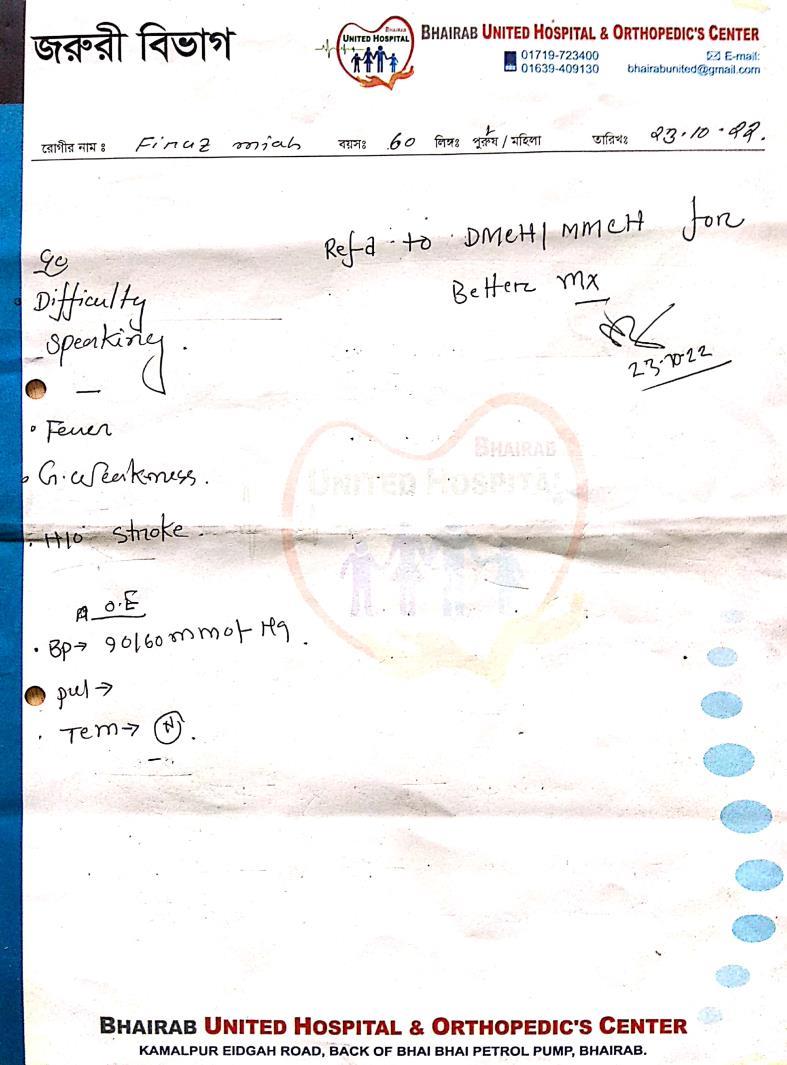 জরুরী বিভাগ
BHAIRAB
UNITED HOSPITAL
BHAIRAB UNITED HOSPITAL & ORTHOPEDIC'S CENTER
01719-723400
01639-409130
E-mail:
bhairabunited@gmail.com
রোগীর নাম ঃ Firuz miah বয়সঃ 60 লিঙ্গঃ পুরুষ / মহিলা তারিখঃ 23.10.22.
Refd to DMCH/ MMCH for
Better mx
23.10.22
Difficulty
Speaking.
Fever
G. weakness.
H/O stroke.
O.E
BP→ 90/60 mm of Hg.
pul→
Tem→ N.
BHAIRAB
UNITED HOSPITAL
BHAIRAB UNITED HOSPITAL & ORTHOPEDIC'S CENTER
KAMALPUR EIDGAH ROAD, BACK OF BHAI BHAI PETROL PUMP, BHAIRAB.